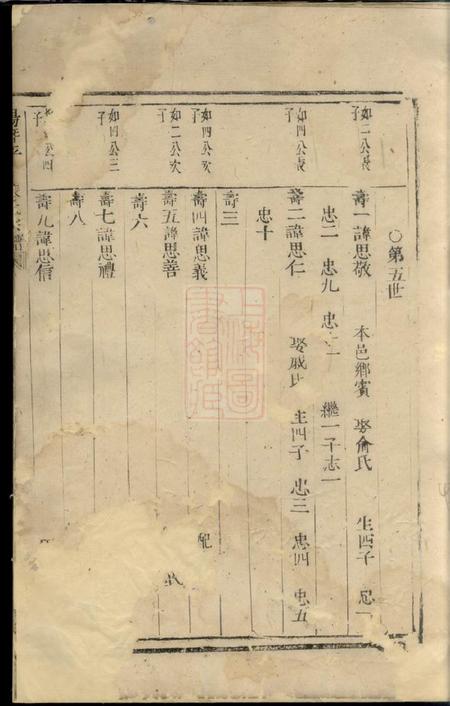 ○第五世
如二公長子
壽一諱思敬 本邑鄉賓 娶俞氏 生四子 忠一
忠二 忠九 忠十二 繼一子志一
如四公長子
壽二諱思仁 娶戚氏 生四子 忠三 忠四 忠五
忠十
壽三
如四公次子
壽四諱思義 配
如二公次子
壽五諱思善 氏
壽六
如四公三子
壽七諱思禮
壽八
公四子
壽九諱思信
上海圖書館藏